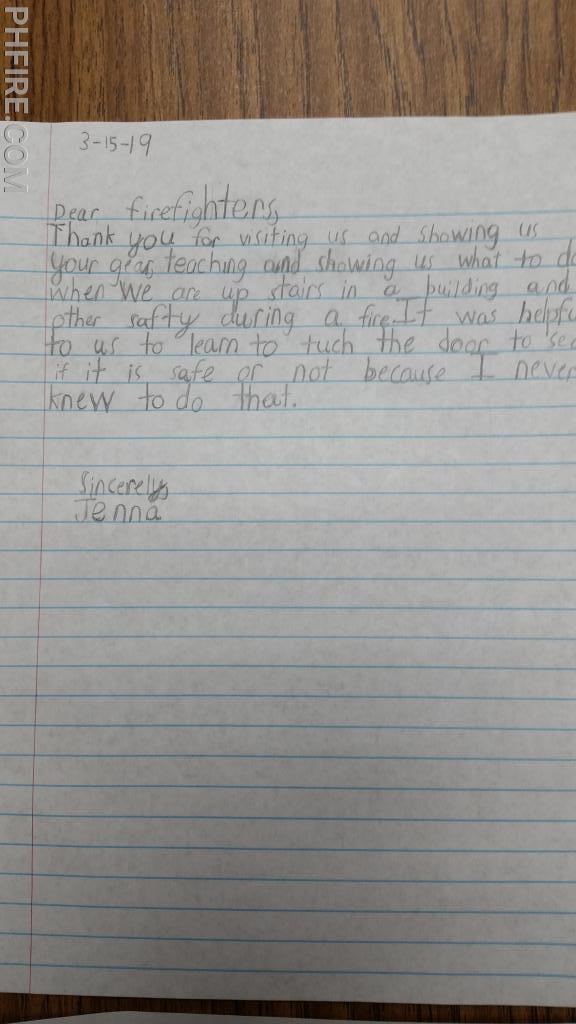 PHFIRE.COM
3-15-19
Dear firefighters,
Thank you for visiting us and showing us
your gear, teaching and showing us what to do
when we are up stairs in a building and
other safty during a fire. It was helpfu
to us to learn to tuch the door to see
if it is safe or not because I never
knew to do that.
Sincerely,
Jenna